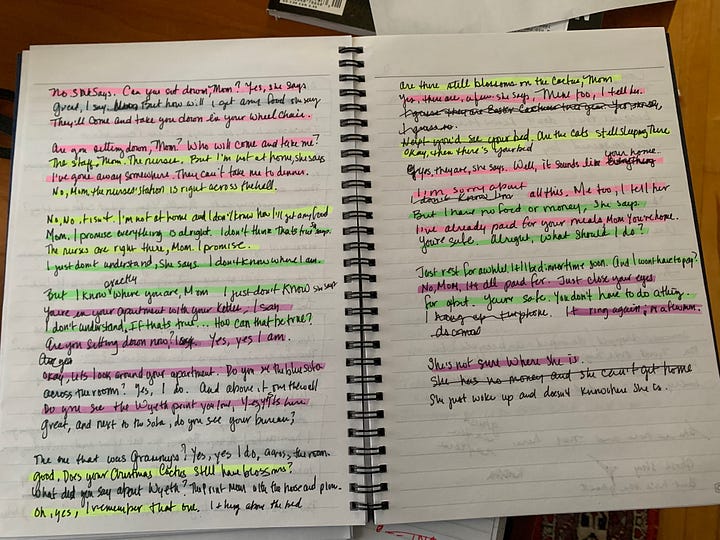 No, she says. Can you sit down, Mom? Yes, she says
great, I say. But how will I get any food she say
They'll come and take you down in your wheel chair.
Are you sitting down, Mom? Who will come and take me?
The staff, Mom. The nurses. But I'm not at home, she says
I've gone away somewhere. They can't take me to dinner.
No, Mom, the nurses' station is right across the hall.
No, No, it isnt. I'm not at home and I don't know how I'll get any food
Mom. I promise everything is alright. I don't think that's true says.
The nurses are right there, Mom. I promise.
I just don't understand, she says. I don't know where I am.
exactly
But I know where you are, Mom I just don't know she says
You're in your apartment with your I say
I don't understand, If that's true... How can that be true?
Are you sitting down now? I say. Yes, yes I am.
Okay, let's look around your apartment. Do you see the blue sofa
across the room? Yes, I do. And above it, on the wall
Do you see the Wyeth print you love, Yes, it's here
great, and next to the sofa, do you see your bureau?
The one that was Grammy's? Yes, yes I do, across the room.
good. Does your Christmas Cactus still have blossoms?
What did you say about Wyeth? The print Mom with the horse and plow.
Oh, yes, I remember that one. above the bed
Are there still blossoms on the cactus, Mom
Yes, there are, a few she says, Mine too, I tell her.
I guess they are Easter Cactuses this year. Yes,
I guess so.
you'd see your bed. Are the cats still sleeping there
Okay, then there's your bed
your home.
Yes, they are, she says. Well, it sounds like everything
I'm sorry about all this. Me too, I tell her
I don't know
But I have no food or money, she says.
I've already paid for your meals Mom. You're home.
You're safe. Alright, what should I do?
Just rest for awhile. It'll be dinnertime soon. And I wont have to pay?
No, Mom, its all paid for. Just close your eyes
for a bit. You're safe. You don't have to do a thing.
I hang up the phone. It ring again, in a few min.
She's not sure where she is.
She has no money and she can't get home
She just woke up and doesn't know where she is.